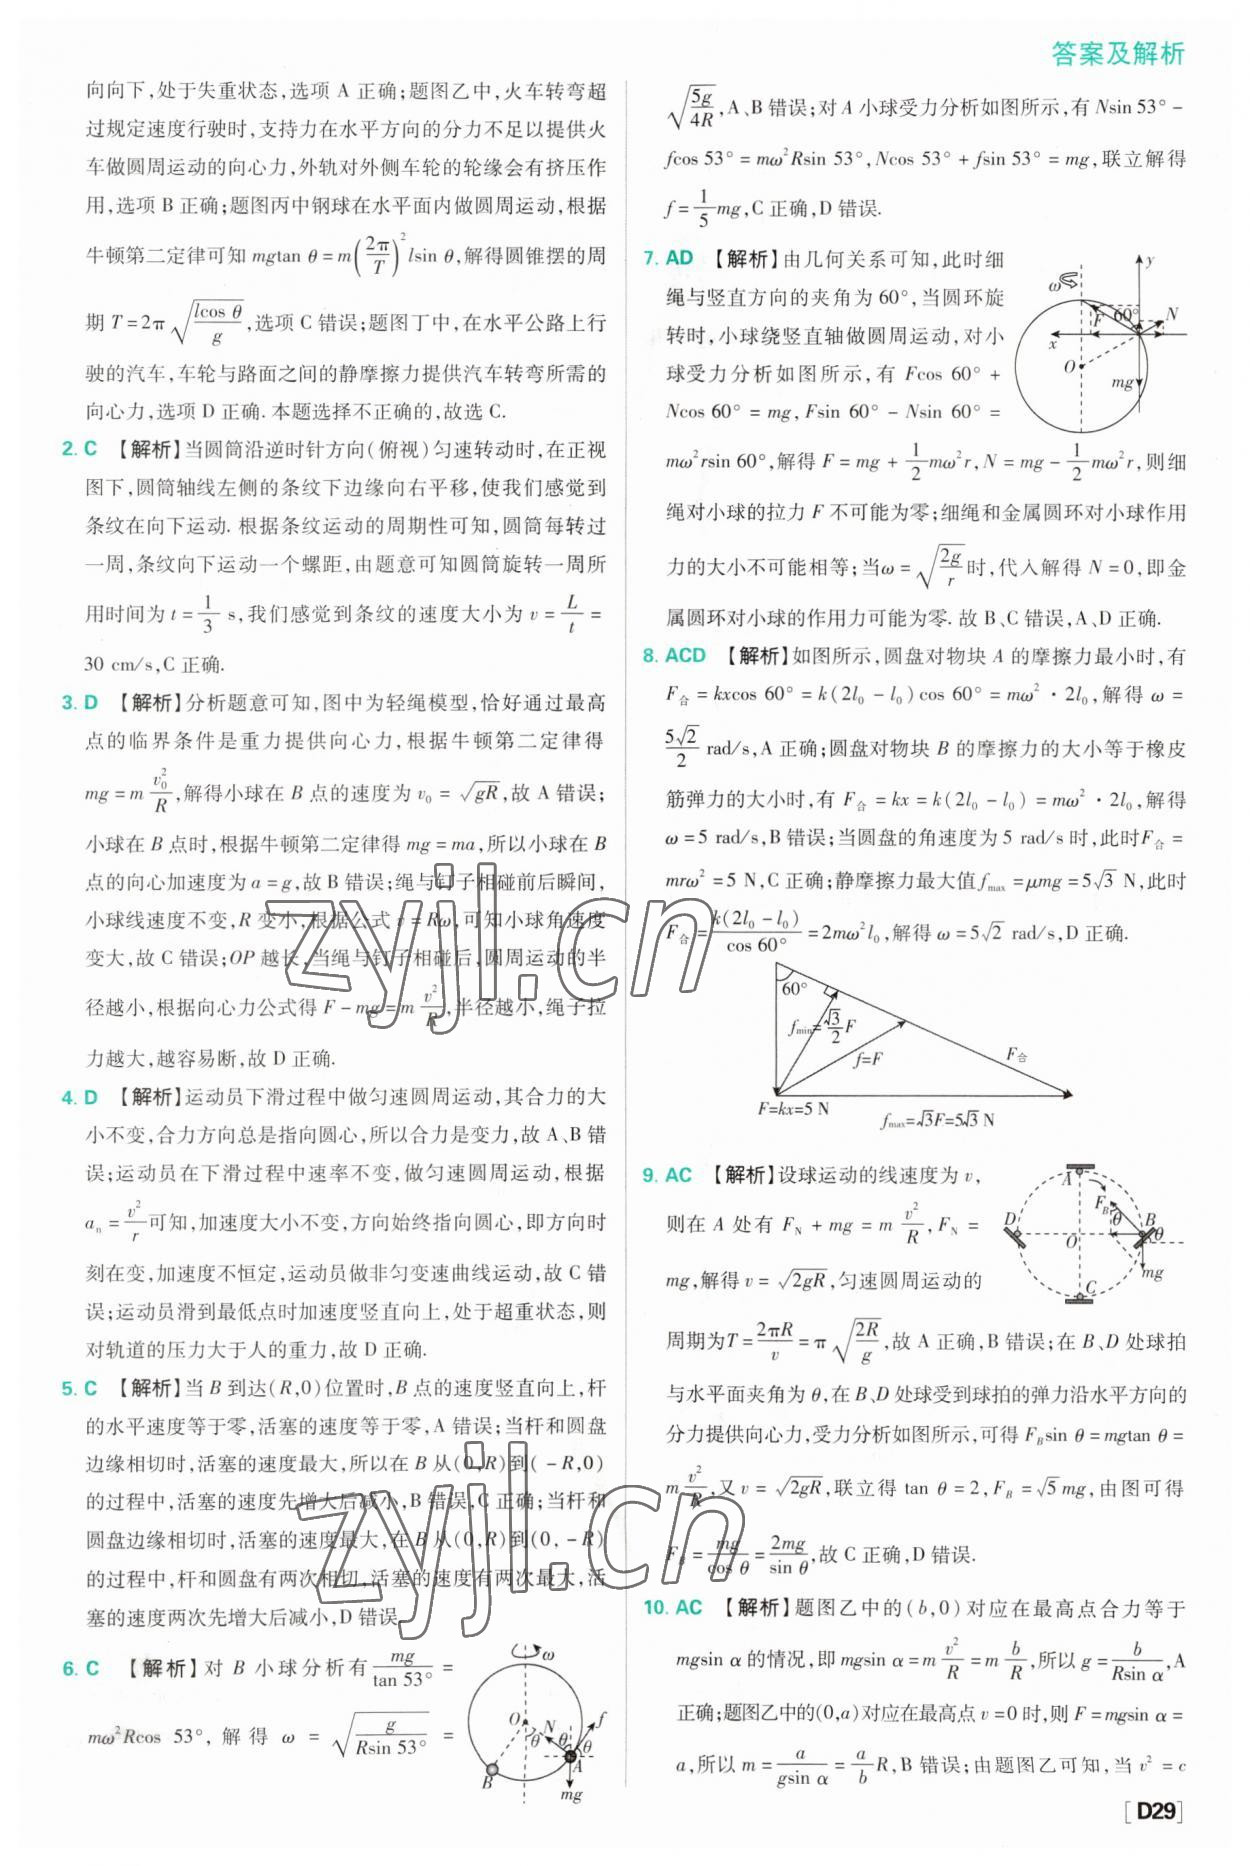 答案及解析
向向下,处于失重状态,选项 A 正确;题图乙中,火车转弯超
过规定速度行驶时,支持力在水平方向的分力不足以提供火
车做圆周运动的向心力,外轨对外侧车轮的轮缘会有挤压作
用,选项 B 正确;题图丙中钢球在水平面内做圆周运动,根据
牛顿第二定律可知 mgtan θ = m(2π/T)²lsin θ,解得圆锥摆的周
期 T = 2π√(lcos θ/g),选项 C 错误;题图丁中,在水平公路上行
驶的汽车,车轮与路面之间的静摩擦力提供汽车转弯所需的
向心力,选项 D 正确. 本题选择不正确的,故选 C.
2. C 【解析】当圆筒沿逆时针方向(俯视)匀速转动时,在正视
图下,圆筒轴线左侧的条纹下边缘向右平移,使我们感觉到
条纹在向下运动. 根据条纹运动的周期性可知,圆筒每转过
一周,条纹向下运动一个螺距,由题意可知圆筒旋转一周所
用时间为 t = 1/3 s,我们感觉到条纹的速度大小为 v = L/t =
30 cm/s,C 正确.
3. D 【解析】分析题意可知,图中为轻绳模型,恰好通过最高
点的临界条件是重力提供向心力,根据牛顿第二定律得
mg = m v₀²/R,解得小球在 B 点的速度为 v₀ = √gR,故 A 错误;
小球在 B 点时,根据牛顿第二定律得 mg = ma,所以小球在 B
点的向心加速度为 a = g,故 B 错误;绳与钉子相碰前后瞬间,
小球线速度不变,R 变小,根据公式 v = Rω,可知小球角速度
变大,故 C 错误;OP 越长,当绳与钉子相碰后,圆周运动的半
径越小,根据向心力公式得 F - mg = m v²/R,半径越小,绳子拉
力越大,越容易断,故 D 正确.
4. D 【解析】运动员下滑过程中做匀速圆周运动,其合力的大
小不变,合力方向总是指向圆心,所以合力是变力,故 A、B 错
误;运动员在下滑过程中速率不变,做匀速圆周运动,根据
aₙ = v²/r 可知,加速度大小不变,方向始终指向圆心,即方向时
刻在变,加速度不恒定,运动员做非匀变速曲线运动,故 C 错
误;运动员滑到最低点时加速度竖直向上,处于超重状态,则
对轨道的压力大于人的重力,故 D 正确.
5. C 【解析】当 B 到达(R,0)位置时,B 点的速度竖直向上,杆
的水平速度等于零,活塞的速度等于零,A 错误;当杆和圆盘
边缘相切时,活塞的速度最大,所以在 B 从(0,R)到( - R,0)
的过程中,活塞的速度先增大后减小,B 错误,C 正确;当杆和
圆盘边缘相切时,活塞的速度最大,在 B 从(0,R)到(0, - R)
的过程中,杆和圆盘有两次相切,活塞的速度有两次最大,活
塞的速度两次先增大后减小,D 错误.
6. C 【解析】对 B 小球分析有 mg/tan 53° =
mω²Rcos 53°, 解得 ω = √(g/Rsin 53°) =
ω
O
N
f
θ
θ
θ
B
A
mg
√(5g/4R),A、B 错误;对 A 小球受力分析如图所示,有 Nsin 53° -
fcos 53° = mω²Rsin 53°,Ncos 53° + fsin 53° = mg,联立解得
f = 1/5 mg,C 正确,D 错误.
7. AD 【解析】由几何关系可知,此时细
绳与竖直方向的夹角为 60°,当圆环旋
转时,小球绕竖直轴做圆周运动,对小
球受力分析如图所示,有 Fcos 60° +
Ncos 60° = mg,Fsin 60° - Nsin 60° =
y
ω
F
60°
N
x
O
mg
mω²rsin 60°,解得 F = mg + 1/2 mω²r,N = mg - 1/2 mω²r,则细
绳对小球的拉力 F 不可能为零;细绳和金属圆环对小球作用
力的大小不可能相等;当ω = √(2g/r)时,代入解得 N = 0,即金
属圆环对小球的作用力可能为零. 故 B、C 错误,A、D 正确.
8. ACD 【解析】如图所示,圆盘对物块 A 的摩擦力最小时,有
F合 = kxcos 60° = k(2l₀ - l₀)cos 60° = mω²·2l₀,解得 ω =
5√2/2 rad/s,A 正确;圆盘对物块 B 的摩擦力的大小等于橡皮
筋弹力的大小时,有 F合 = kx = k(2l₀ - l₀) = mω²·2l₀,解得
ω = 5 rad/s,B 错误;当圆盘的角速度为 5 rad/s 时,此时F合 =
mrω² = 5 N,C 正确;静摩擦力最大值fmax = μmg = 5√3 N,此时
F合 = k(2l₀ - l₀)/cos 60° = 2mω²l₀,解得 ω = 5√2 rad/s,D 正确.
60°
fmin=√3/2 F
f=F
F合
F=kx=5 N
fmax=√3F=5√3 N
9. AC 【解析】设球运动的线速度为 v,
则在 A 处有 F_N + mg = m v²/R,F_N =
mg,解得 v = √2gR,匀速圆周运动的
A
F_B
θ
B
θ
D
O
C
mg
周期为T = 2πR/v = π√(2R/g),故 A 正确,B 错误;在 B、D 处球拍
与水平面夹角为 θ,在 B、D 处球受到球拍的弹力沿水平方向的
分力提供向心力,受力分析如图所示,可得 F_Bsin θ = mgtan θ =
m v²/R,又 v = √2gR,联立得 tan θ = 2,F_B = √5 mg,由图可得
F_B = mg/cos θ = 2mg/sin θ,故 C 正确,D 错误.
10. AC 【解析】题图乙中的(b,0)对应在最高点合力等于
mgsin α 的情况,即 mgsin α = m v²/R = m b/R,所以 g = b/Rsin α,A
正确;题图乙中的(0,a)对应在最高点 v = 0 时,则 F = mgsin α =
a,所以 m = a/gsin α = a/b R,B 错误;由题图乙可知,当 v² = c
[D29]
zyjl.cn
zyjl.cn